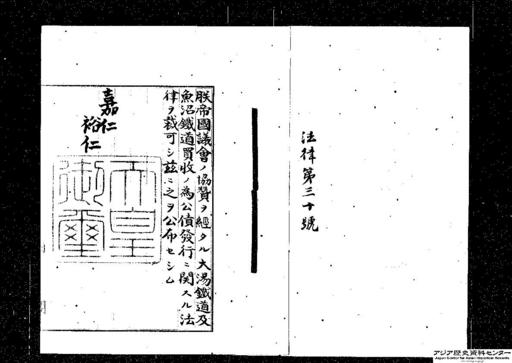 法律第三十號
朕帝國議會ノ協贊ヲ經タル大湯鐵道及
魚沼鐵道買收ノ為公債發行ニ關スル法
律ヲ裁可シ茲ニ之ヲ公布セシム
嘉仁
裕仁
天皇
御璽
アジア歴史資料センター
Japan Center for Asian Historical Records